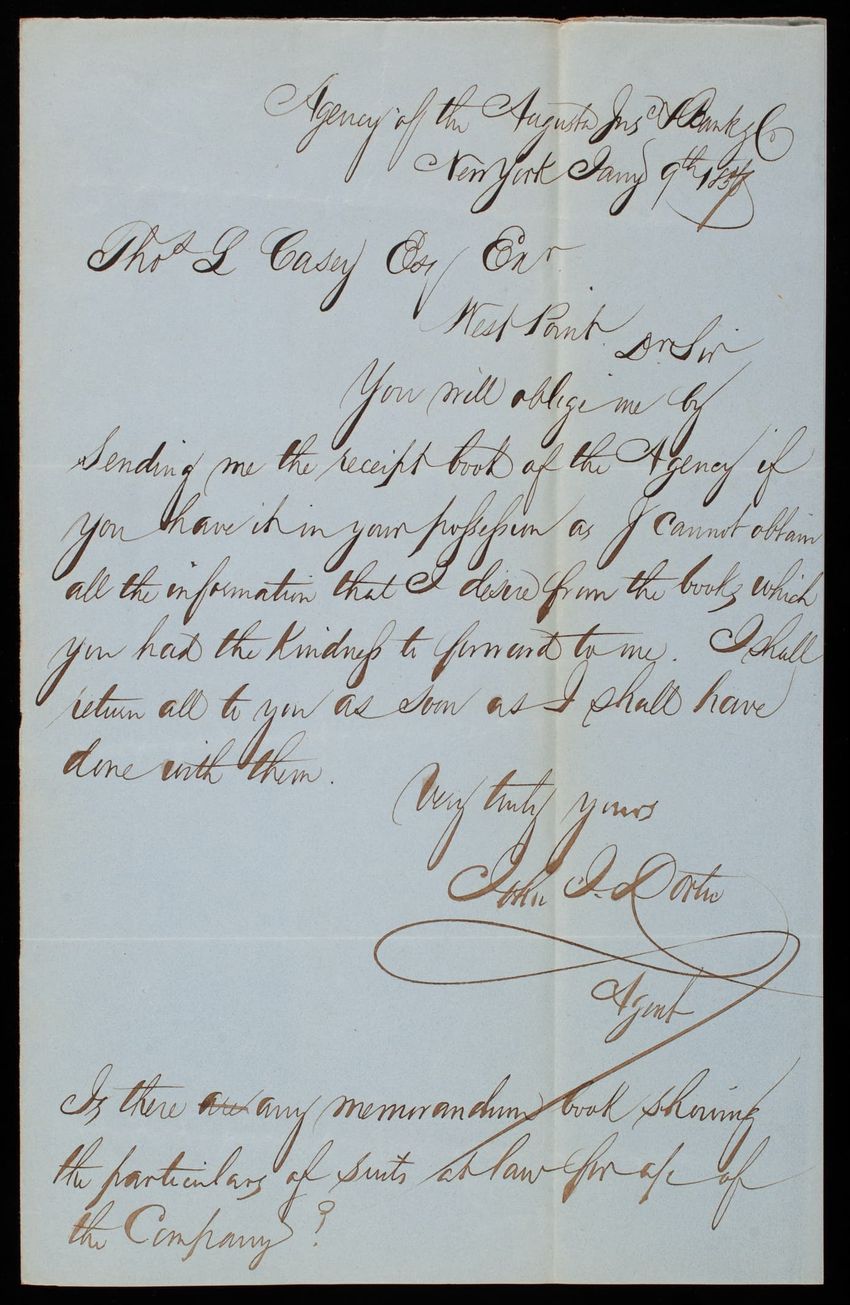 Agency of the Augusta Insce & Bankg Co
New York Jany 9th
Thos L Casey Esq Exr
West Point.
Dr Sir
You will oblige me by
sending me the receipt book of the Agency if
you have it in your possession as I cannot obtain
all the information that I desire from the books which
you had the kindness to forward to me. I shall
return all to you as soon as I shall have
done with them.
Very truly yours
John J. Dortic
Agent
Is there are any memorandum book showing
the particulars of suits at law for a/c of
the Company?